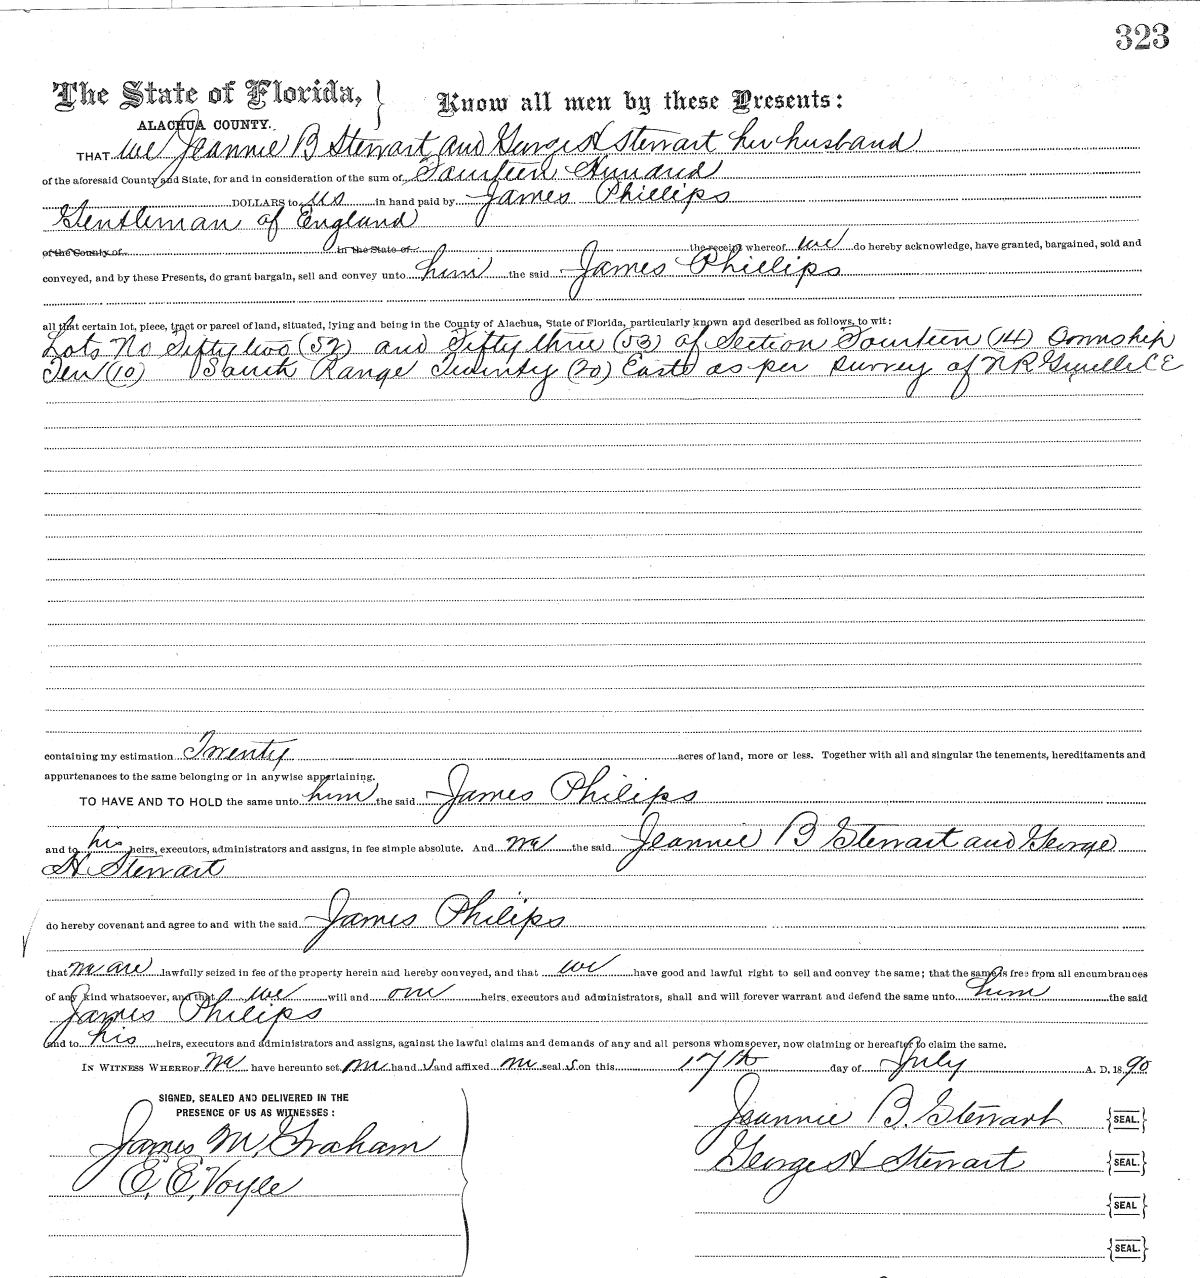 323
The State of Florida, } Know all men by these Presents:
ALACHUA COUNTY.
THAT we Jeannie B Stewart and George H Stewart her husband
of the aforesaid County and State, for and in consideration of the sum of Fourteen Hundred
DOLLARS to us in hand paid by James Phillips
Gentleman of England
of the County of in the State of the receipt whereof we do hereby acknowledge, have granted, bargained, sold and
conveyed, and by these Presents, do grant bargain, sell and convey unto him the said James Phillips
all that certain lot, piece, tract or parcel of land, situated, lying and being in the County of Alachua, State of Florida, particularly known and described as follows, to wit:
Lots No Fifty two (52) and Fifty three (53) of Section Fourteen (14) Township
Ten (10) South Range Twenty (20) East as per survey of N R CE
containing my estimation Twenty acres of land, more or less. Together with all and singular the tenements, hereditaments and
appurtenances to the same belonging or in anywise appertaining.
TO HAVE AND TO HOLD the same unto him the said James Philips
and to his heirs, executors, administrators and assigns, in fee simple absolute. And we the said Jeannie B Stewart and George
H Stewart
do hereby covenant and agree to and with the said James Philips
that we are lawfully seized in fee of the property herein and hereby conveyed, and that we have good and lawful right to sell and convey the same; that the same is free from all encumbrances
of any kind whatsoever, and that we will and our heirs, executors and administrators, shall and will forever warrant and defend the same unto him the said
James Philips
and to his heirs, executors and administrators and assigns, against the lawful claims and demands of any and all persons whomsoever, now claiming or hereafter to claim the same.
IN WITNESS WHEREOF we have hereunto set our hand s and affixed our seal s on this 17th day of July A. D. 1890
SIGNED, SEALED AND DELIVERED IN THE
PRESENCE OF US AS WITNESSES:
James M. Graham
E. E. Voyle
Jeannie B. Stewart {SEAL.}
George H Stewart {SEAL.}
{SEAL}
{SEAL.}